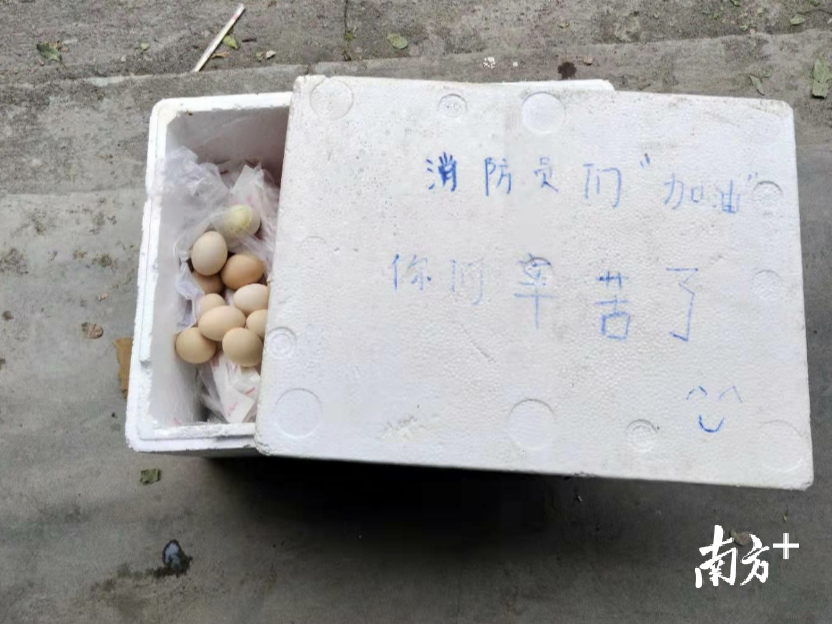 消防员们"加油"
你们辛苦了
南方+